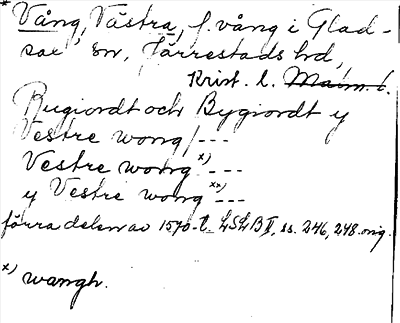 * Vång, Västra, f. vång i Glad-
sax sn, Järrestads hd,
Krist. l. Malm. l.
Rugiordt och Bygiordt y
Vestre wong/---
Vestre wong x) ---
y Vestre wong xx) ---
förra delen av 1570-t. LSLB II, ss. 246, 248. orig.
x) wangh.